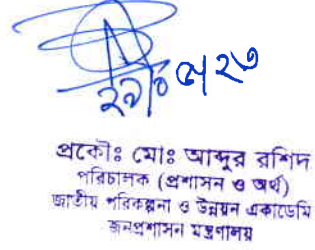 প্রকৌঃ মোঃ আব্দুর রশিদ
পরিচালক (প্রশাসন ও অর্থ)
জাতীয় পরিকল্পনা ও উন্নয়ন একাডেমি
জনপ্রশাসন মন্ত্রণালয়